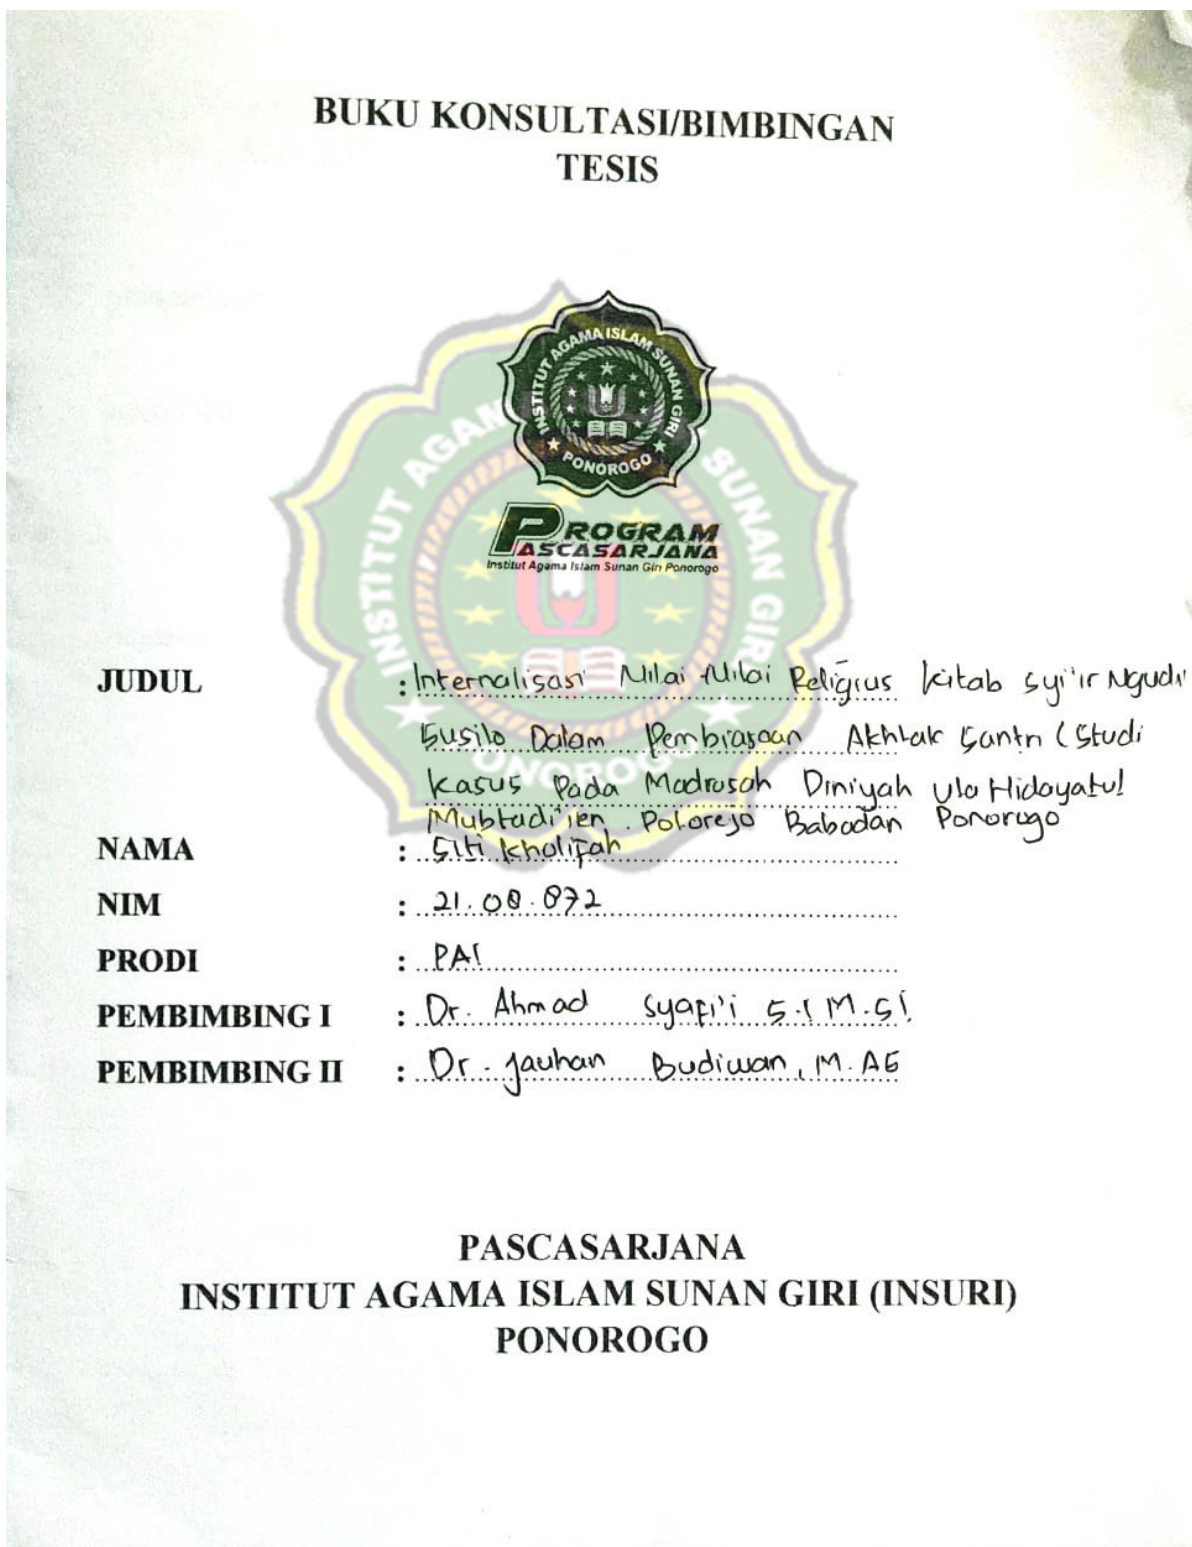 BUKU KONSULTASI/BIMBINGAN
TESIS
INSTITUT AGAMA ISLAM SUNAN GIRI
PONOROGO
PROGRAM
PASCASARJANA
Institut Agama Islam Sunan Giri Ponorogo
INSTITUT AGAMA ISLAM SUNAN GIRI
PONOROGO
JUDUL : Internalisasi Nilai Nilai Religius Kitab Syi'ir Ngudi
Susilo Dalam Pembiasaan Akhlak Santri (Studi
Kasus Pada Madrasah Diniyah Ula Hidayatul
Mubtadi'ien Polorejo Babadan Ponorogo
NAMA : Siti Kholifah
NIM : 21.08.872
PRODI : PAI
PEMBIMBING I : Dr. Ahmad Syafi'i S.I M.SI
PEMBIMBING II : Dr. Jauhan Budiwan, M.AG
PASCASARJANA
INSTITUT AGAMA ISLAM SUNAN GIRI (INSURI)
PONOROGO